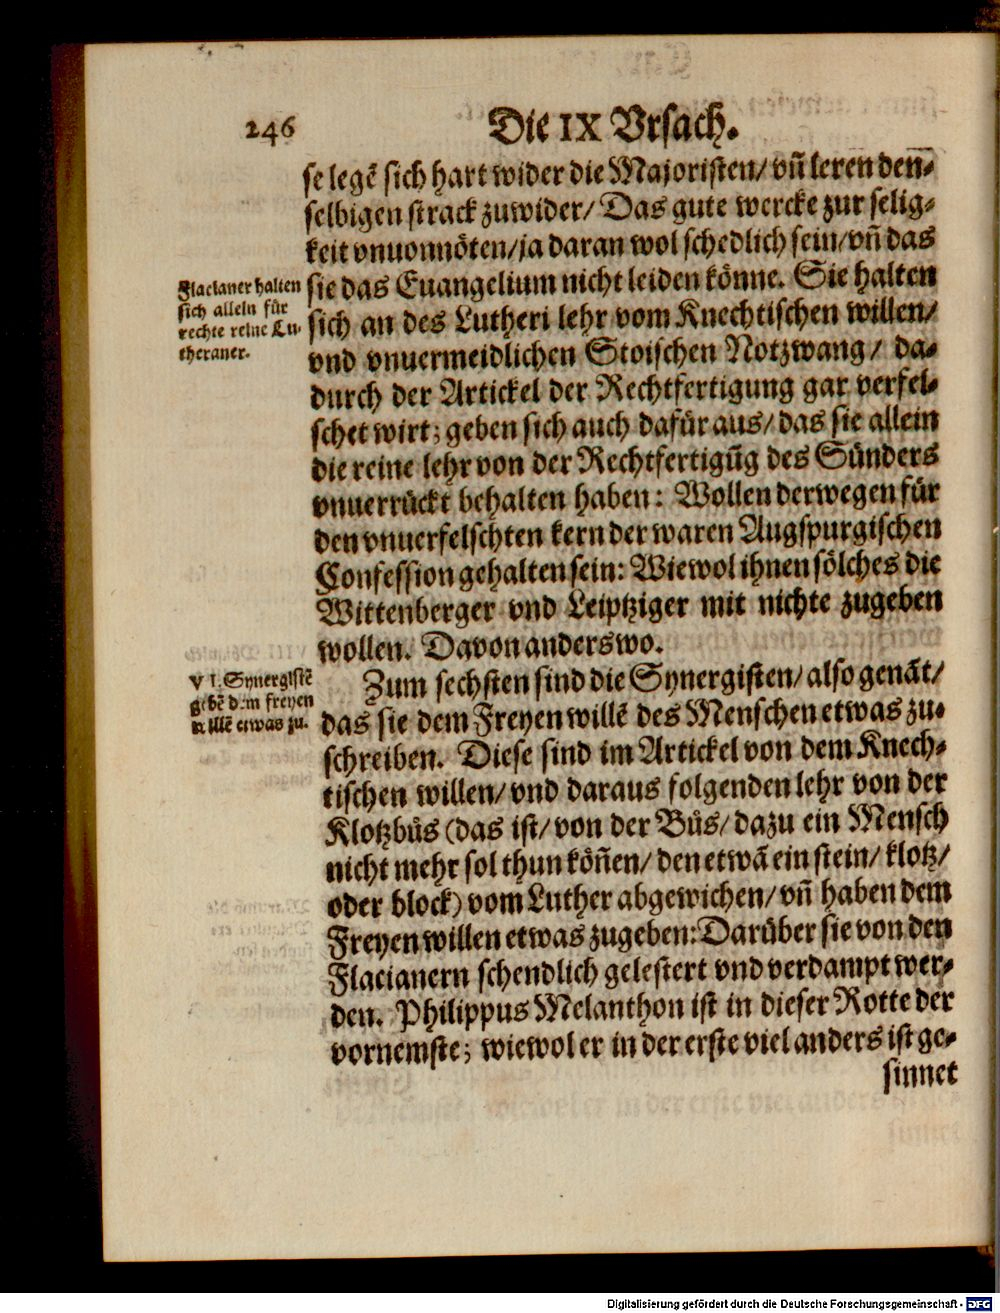 246
Die IX Vrsach.
se legẽ sich hart wider die Majoristen/ vñ leren den-
selbigen strack zuwider/ Das gute wercke zur selig-
keit vnuonnöten/ ja daran wol schedlich sein/ vñ das
sie das Euangelium nicht leiden könne. Sie halten
sich an des Lutheri lehr vom Knechtischen willen/
vnd vnuermeidlichen Stoischen Notzwang/ da-
durch der Artickel der Rechtfertigung gar verfel-
schet wirt; geben sich auch dafür aus/ das sie allein
die reine lehr von der Rechtfertigũg des Sünders
vnuerrückt behalten haben: Wollen derwegen für
den vnuerfelschten kern der waren Augspurgischen
Confession gehalten sein: Wiewol ihnen sölches die
Wittenberger vnd Leiptziger mit nichte zugeben
wollen. Davon anderswo.
Flacianer halten
sich allein für
rechte reine Lu-
theraner.
Zum sechsten sind die Synergisten/ also genãt/
das sie dem Freyen willẽ des Menschen etwas zu-
schreiben. Diese sind im Artickel von dem Knech-
tischen willen/ vnd daraus folgenden lehr von der
Klotzbůs (das ist/ von der Bůs/ dazu ein Mensch
nicht mehr sol thun köñen/ den etwã ein stein/ klotz/
oder block) vom Luther abgewichen/ vñ haben dem
Freyen willen etwas zugeben: Darüber sie von den
Flacianern schendlich gelestert vnd verdampt wer-
den. Philippus Melanthon ist in dieser Rotte der
vornemste; wiewol er in der erste viel anders ist ge-
sinnet
VI. Synergistẽ
gebẽ dem freyen
willẽ etwas zu.
Digitalisierung gefördert durch die Deutsche Forschungsgemeinschaft - DFG